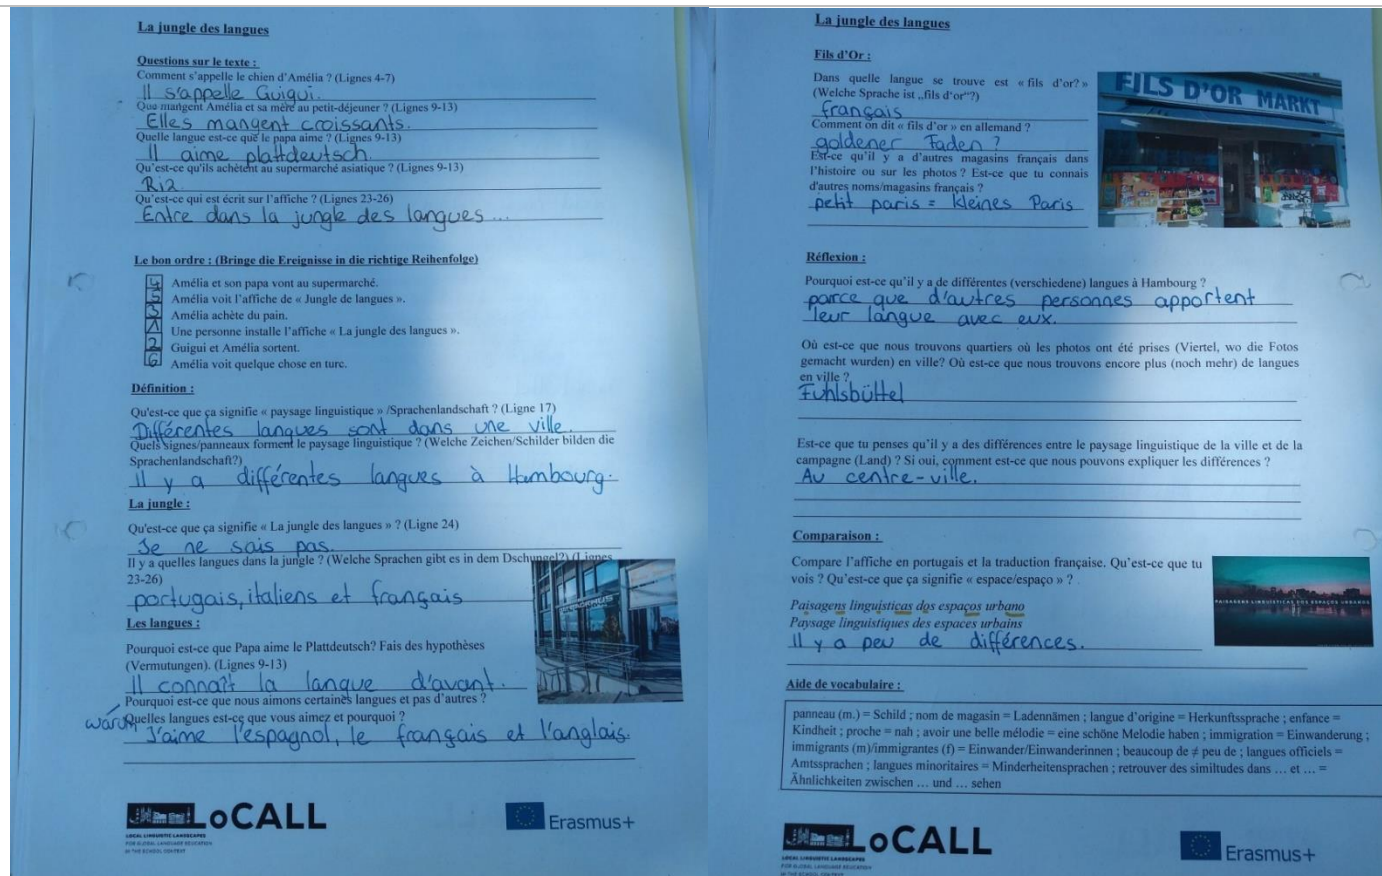 La jungle des langues
Questions sur le texte :
Comment s'appelle le chien d'Amélia ? (Lignes 4-7)
Il s'appelle Guigui.
Que mangent Amélia et sa mère au petit-déjeuner ? (Lignes 9-13)
Elles mangent croissants.
Quelle langue est-ce que le papa aime ? (Lignes 9-13)
Il aime plattdeutsch.
Qu'est-ce qu'ils achètent au supermarché asiatique ? (Lignes 9-13)
Riz.
Qu'est-ce qui est écrit sur l'affiche ? (Lignes 23-26)
Entre dans la jungle des langues...
Le bon ordre : (Bringe die Ereignisse in die richtige Reihenfolge)
4 Amélia et son papa vont au supermarché.
5 Amélia voit l'affiche de « Jungle de langues ».
3 Amélia achète du pain.
1 Une personne installe l'affiche « La jungle des langues ».
2 Guigui et Amélia sortent.
6 Amélia voit quelque chose en turc.
Définition :
Qu'est-ce que ça signifie « paysage linguistique » /Sprachenlandschaft ? (Ligne 17)
Différentes langues sont dans une ville.
Quels signes/panneaux forment le paysage linguistique ? (Welche Zeichen/Schilder bilden die
Sprachenlandschaft?)
Il y a différentes langues à Hambourg.
La jungle :
Qu'est-ce que ça signifie « La jungle des langues » ? (Ligne 24)
Je ne sais pas.
Il y a quelles langues dans la jungle ? (Welche Sprachen gibt es in dem Dschungel?) (Lignes
23-26)
portugais, italiens et français
Les langues :
Pourquoi est-ce que Papa aime le Plattdeutsch? Fais des hypothèses
(Vermutungen). (Lignes 9-13)
Il connaît la langue d'avant.
Pourquoi est-ce que nous aimons certaines langues et pas d'autres ?
warum Quelles langues est-ce que vous aimez et pourquoi ?
J'aime l'espagnol, le français et l'anglais.
LoCALL
LOCAL LINGUISTIC LANDSCAPES
FOR GLOBAL LANGUAGE EDUCATION
IN THE SCHOOL CONTEXT
Erasmus+
La jungle des langues
Fils d'Or :
Dans quelle langue se trouve est « fils d'or? »
(Welche Sprache ist „fils d'or"?)
français
Comment on dit « fils d'or » en allemand ?
goldener Faden ?
Est-ce qu'il y a d'autres magasins français dans
l'histoire ou sur les photos ? Est-ce que tu connais
d'autres noms/magasins français ?
petit paris = kleines Paris
FILS D'OR MARKT
Réflexion :
Pourquoi est-ce qu'il y a de différentes (verschiedene) langues à Hambourg ?
parce que d'autres personnes apportent
leur langue avec eux.
Où est-ce que nous trouvons quartiers où les photos ont été prises (Viertel, wo die Fotos
gemacht wurden) en ville? Où est-ce que nous trouvons encore plus (noch mehr) de langues
en ville ?
Fuhlsbüttel
Est-ce que tu penses qu'il y a des différences entre le paysage linguistique de la ville et de la
campagne (Land) ? Si oui, comment est-ce que nous pouvons expliquer les différences ?
Au centre-ville.
Comparaison :
Compare l'affiche en portugais et la traduction française. Qu'est-ce que tu
vois ? Qu'est-ce que ça signifie « espace/espaço » ?
Paisagens linguisticas dos espaços urbano
Paysage linguistiques des espaces urbains
Il y a peu de différences.
PAISAGENS LINGUÍSTICAS DOS ESPAÇOS URBANOS
Aide de vocabulaire :
panneau (m.) = Schild ; nom de magasin = Ladennämen ; langue d'origine = Herkunftssprache ; enfance =
Kindheit ; proche = nah ; avoir une belle mélodie = eine schöne Melodie haben ; immigration = Einwanderung ;
immigrants (m)/immigrantes (f) = Einwander/Einwanderinnen ; beaucoup de ≠ peu de ; langues officiels =
Amtssprachen ; langues minoritaires = Minderheitensprachen ; retrouver des similtudes dans … et … =
Ähnlichkeiten zwischen … und … sehen
LoCALL
LOCAL LINGUISTIC LANDSCAPES
FOR GLOBAL LANGUAGE EDUCATION
IN THE SCHOOL CONTEXT
Erasmus+